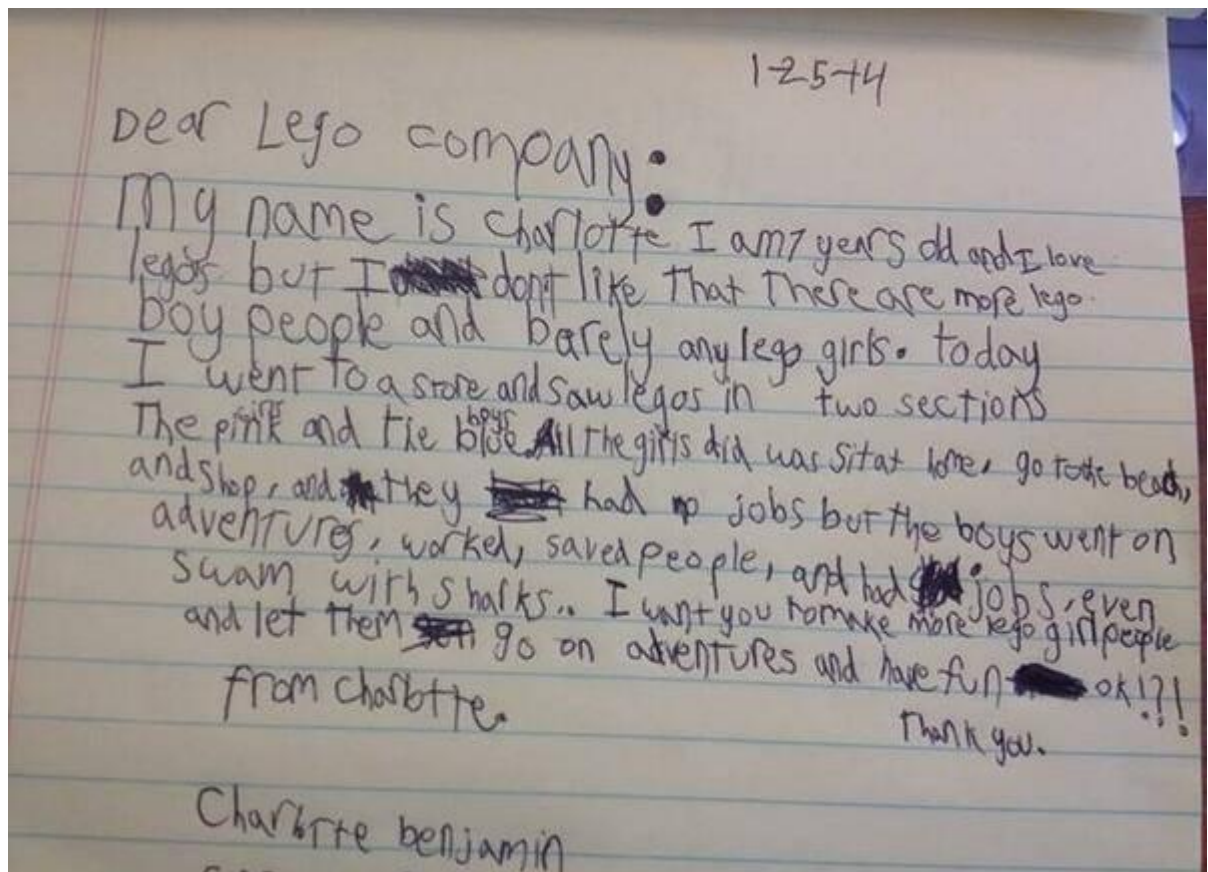 1-25-14
Dear Lego company:
My name is Charlotte I am 7 years old and I love
legos but I don't like that There are more lego
boy people and barely any lego girls. today
I went to a store and saw legos in two sections
The pink girls and the blue boys. All the girls did was sit at home, go to the beach,
and shop, and they had no jobs but the boys went on
adventures, worked, saved people, and had jobs, even
swam with sharks.. I want you to make more lego girl people
and let them go on adventures and have fun ok!?!
from charlotte.
Thank you.
Charlotte benjamin